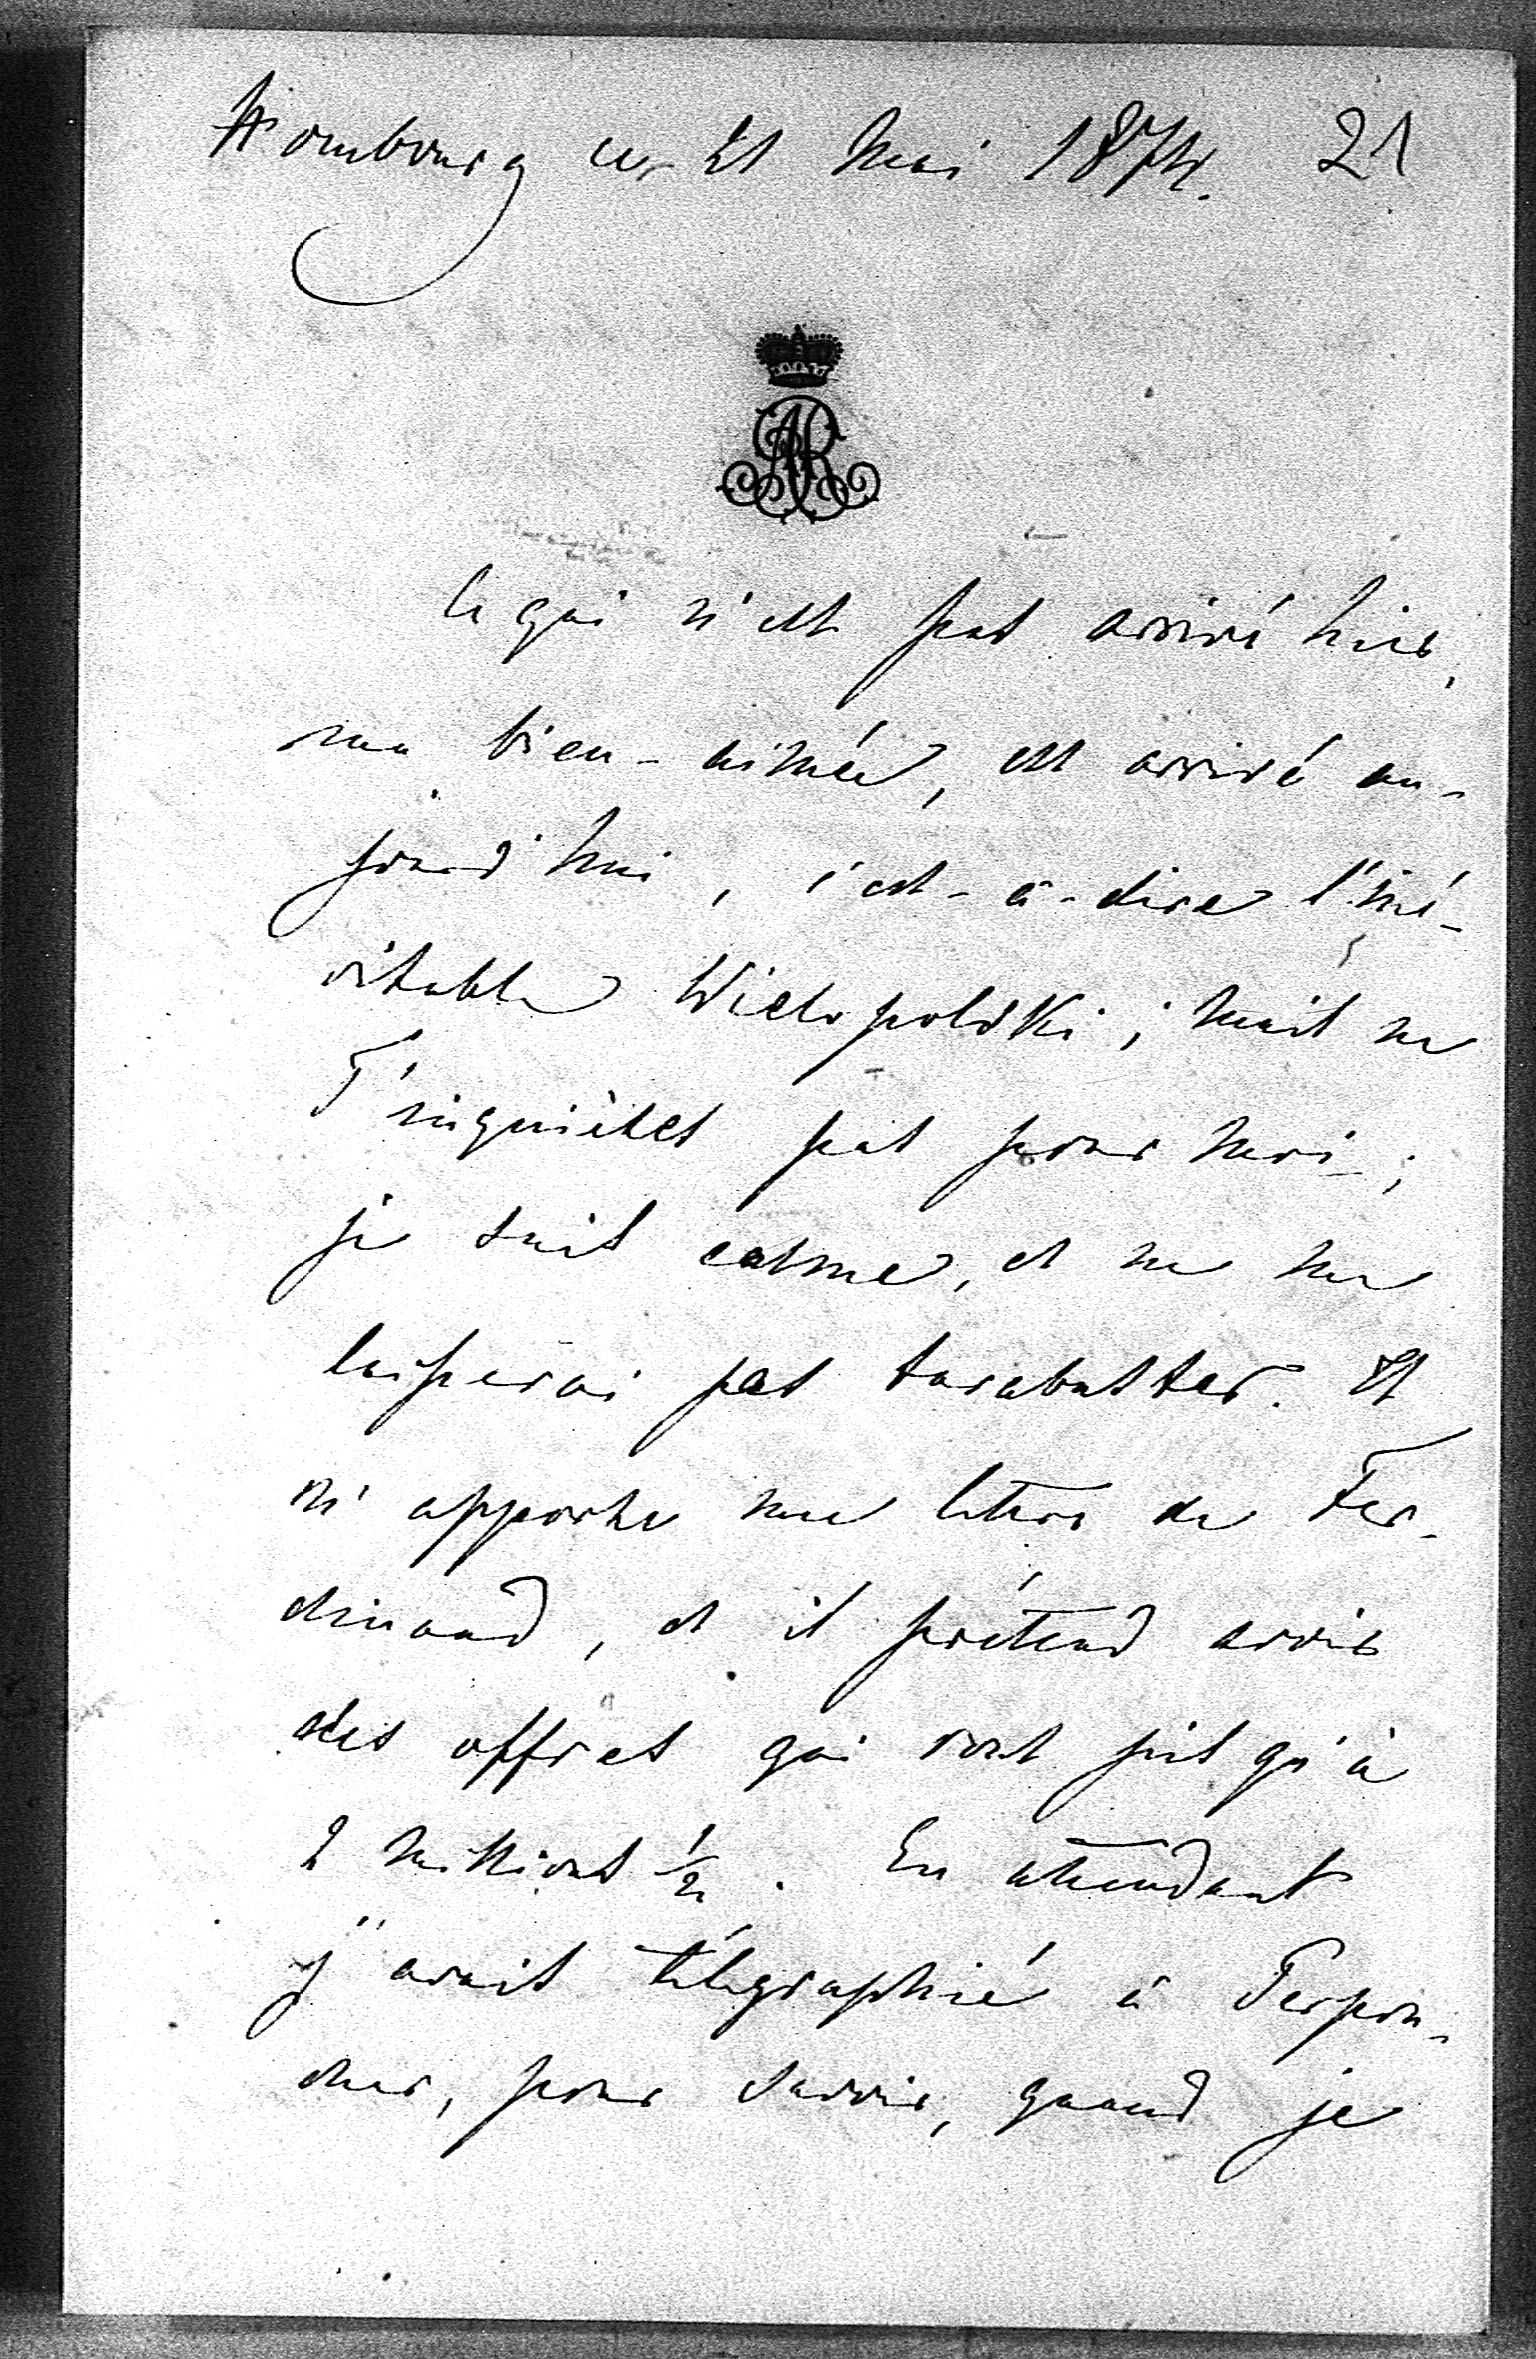 Hombourg ce 21 Mai 1874. 21
AR
Ce qui n'est pas arrivé hier,
ma bien-aimée, est arrivé au-
jourd'hui, c'est-à-dire l'iné-
vitable Wielopolski; mais ne
T'inquiètes pas pour moi;
je suis calme, et ne me
laisserai pas tarabuster. Il
m'apporte une lettre de Fer-
dinand, et il prétend avoir
des offres qui vont jusqu'à
2 millions ½. En attendant
j'avais télégraphié à Perpon-
cher, pour savoir, quand je